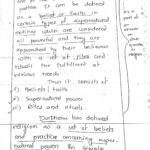 power. It can be defined
as a belief or faith in
certain types of supernatural
entities which are considered
as powerful and they are
approached by their believers
with a set of rites and
rituals for fulfillment of
various needs
Thus it consists of
1) Beliefs / faith
2) Supernatural power
3) Rites and rituals
Durkheim has defined
religion as a set of beliefs
and practice concerning
supernatural powers. In simple